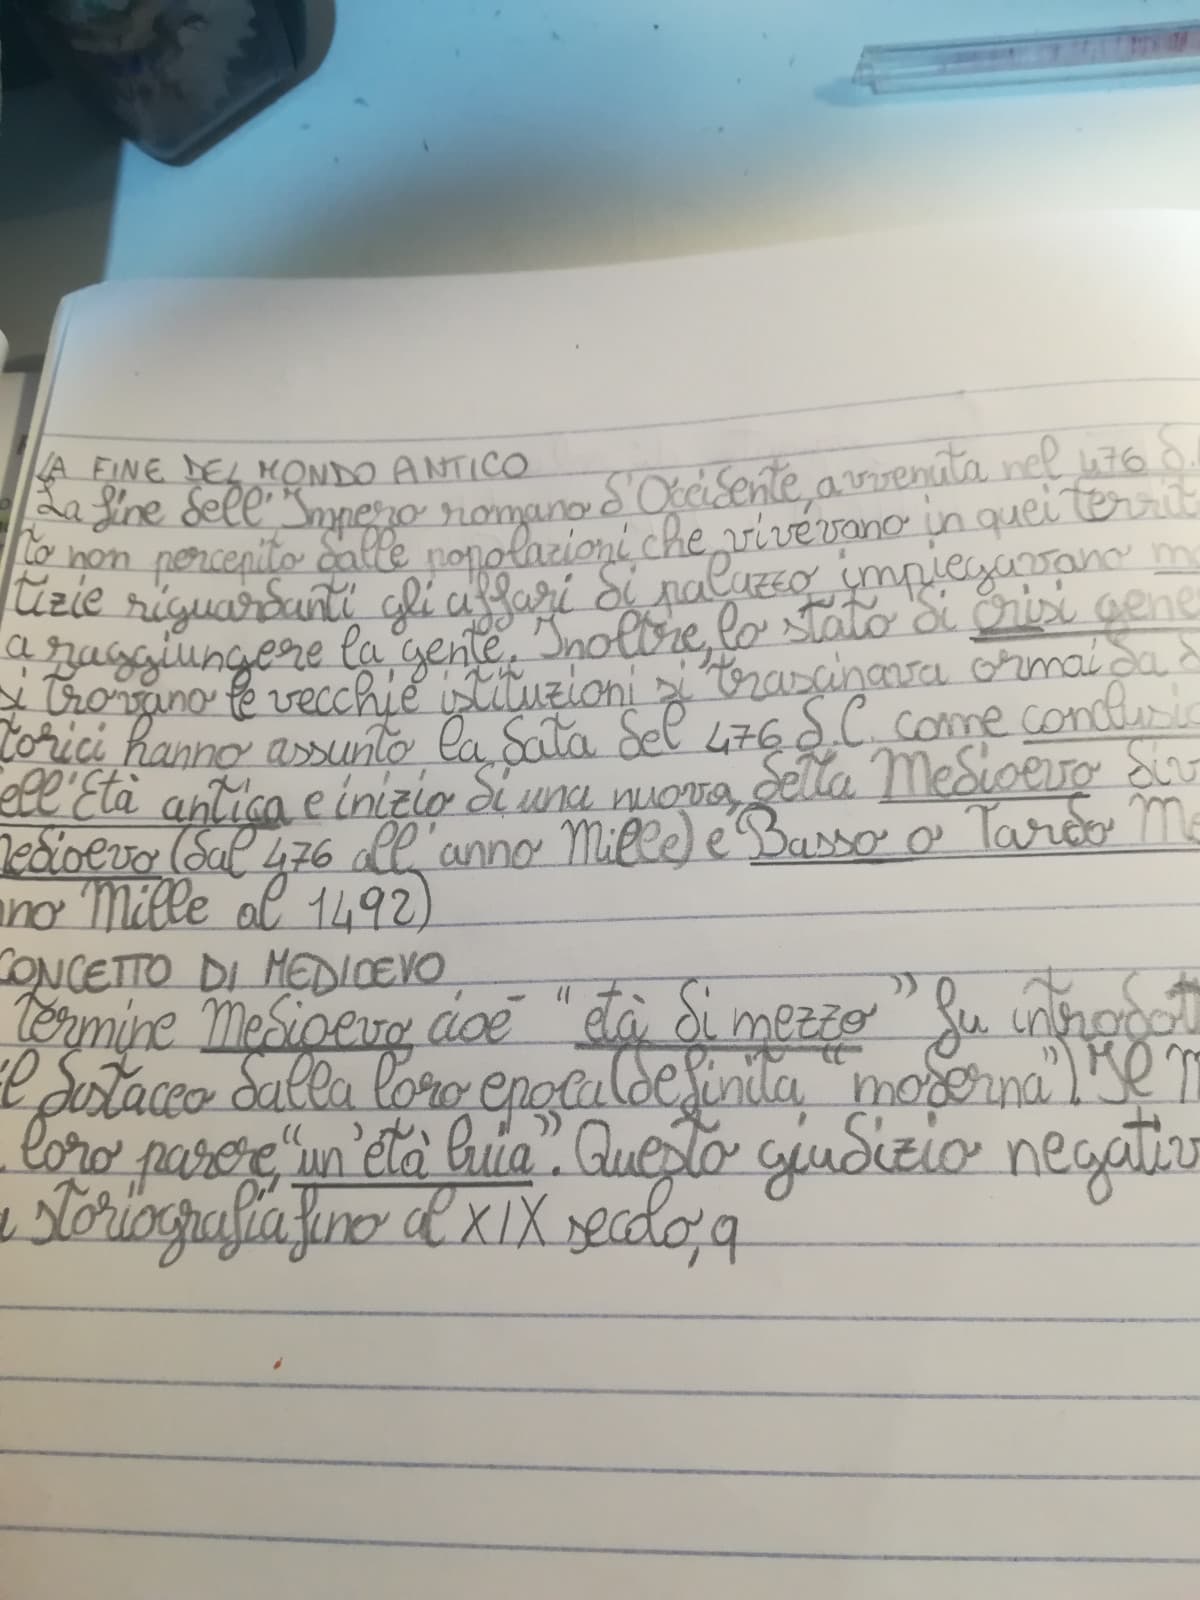 LA FINE DEL MONDO ANTICO
La fine dell'Impero romano d'Occidente, avvenuta nel 476 d.
to non percepito dalle popolazioni che vivevano in quei territ
tizie riguardanti gli affari di palazzo impiegavano m
a raggiungere la gente. Inoltre, lo stato di crisi gene
si trovano le vecchie istituzioni si trascinava ormai da d
torici hanno assunto la data del 476 d.C. come conclusi
ell'Età antica e inizio di una nuova, detta Medioevo div
medioevo (dal 476 all'anno Mille) e Basso o Tardo Me
no Mille al 1492)
CONCETTO DI MEDIOEVO
termine Medioevo cioè "età di mezzo" fu introdott
il distacco dalla loro epoca (definita "moderna"). Il M
loro parere, "un'età buia". Questo giudizio negativ
a storiografia fino al XIX secolo, q